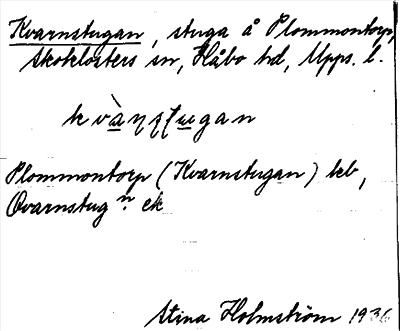 Kvarnstugan, stuga å Plommontorp,
Skoklosters sn, Håbo hd, Upps. l.
Plommontorp (Kvarnstugan) kb,
Qvarnstugn. ek
Stina Holmström 1936